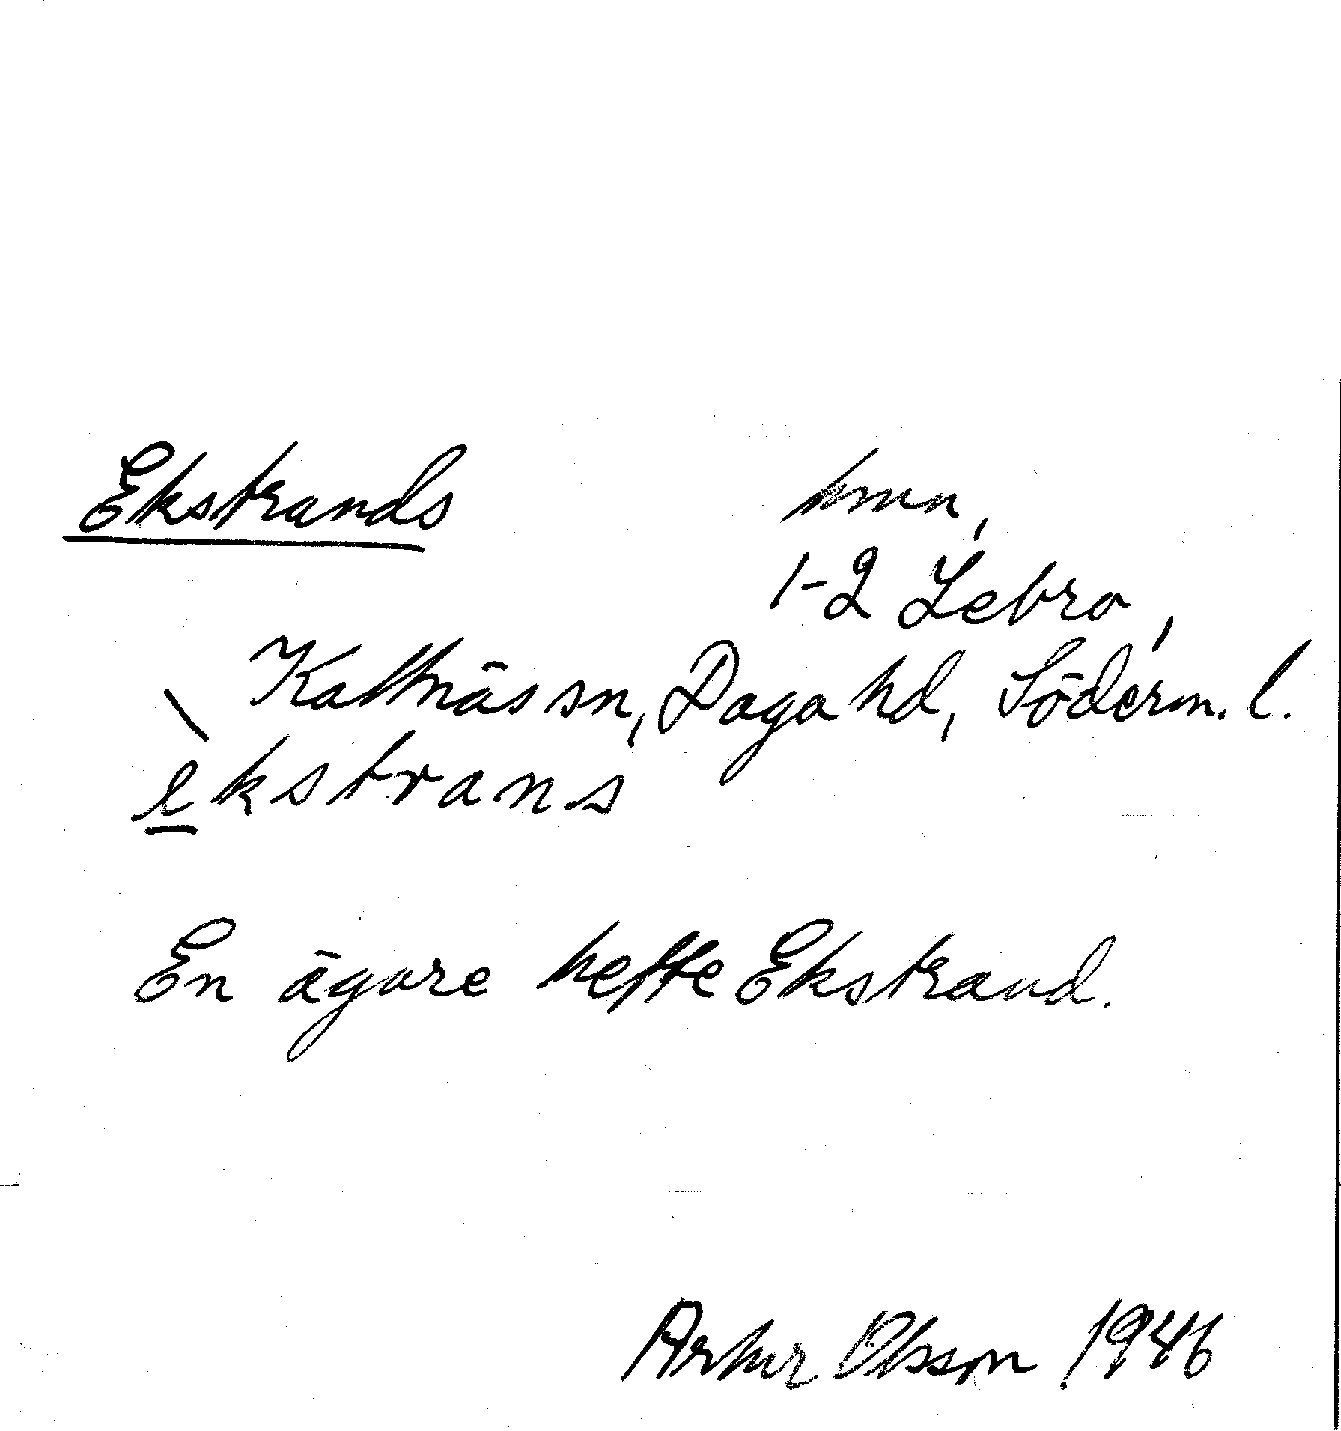 Ekstrands
hmn,
1-2 Lebro,
Kattnäs sn, Daga hd, Söderm. l.
\ekstrans
En ägare hette Ekstrand.
Arthur Olsson 1946